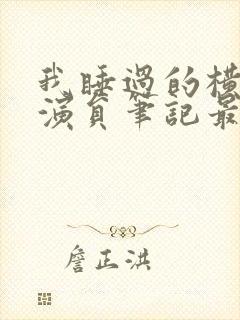 我睡過的橫
演員筆記最
詹正洪